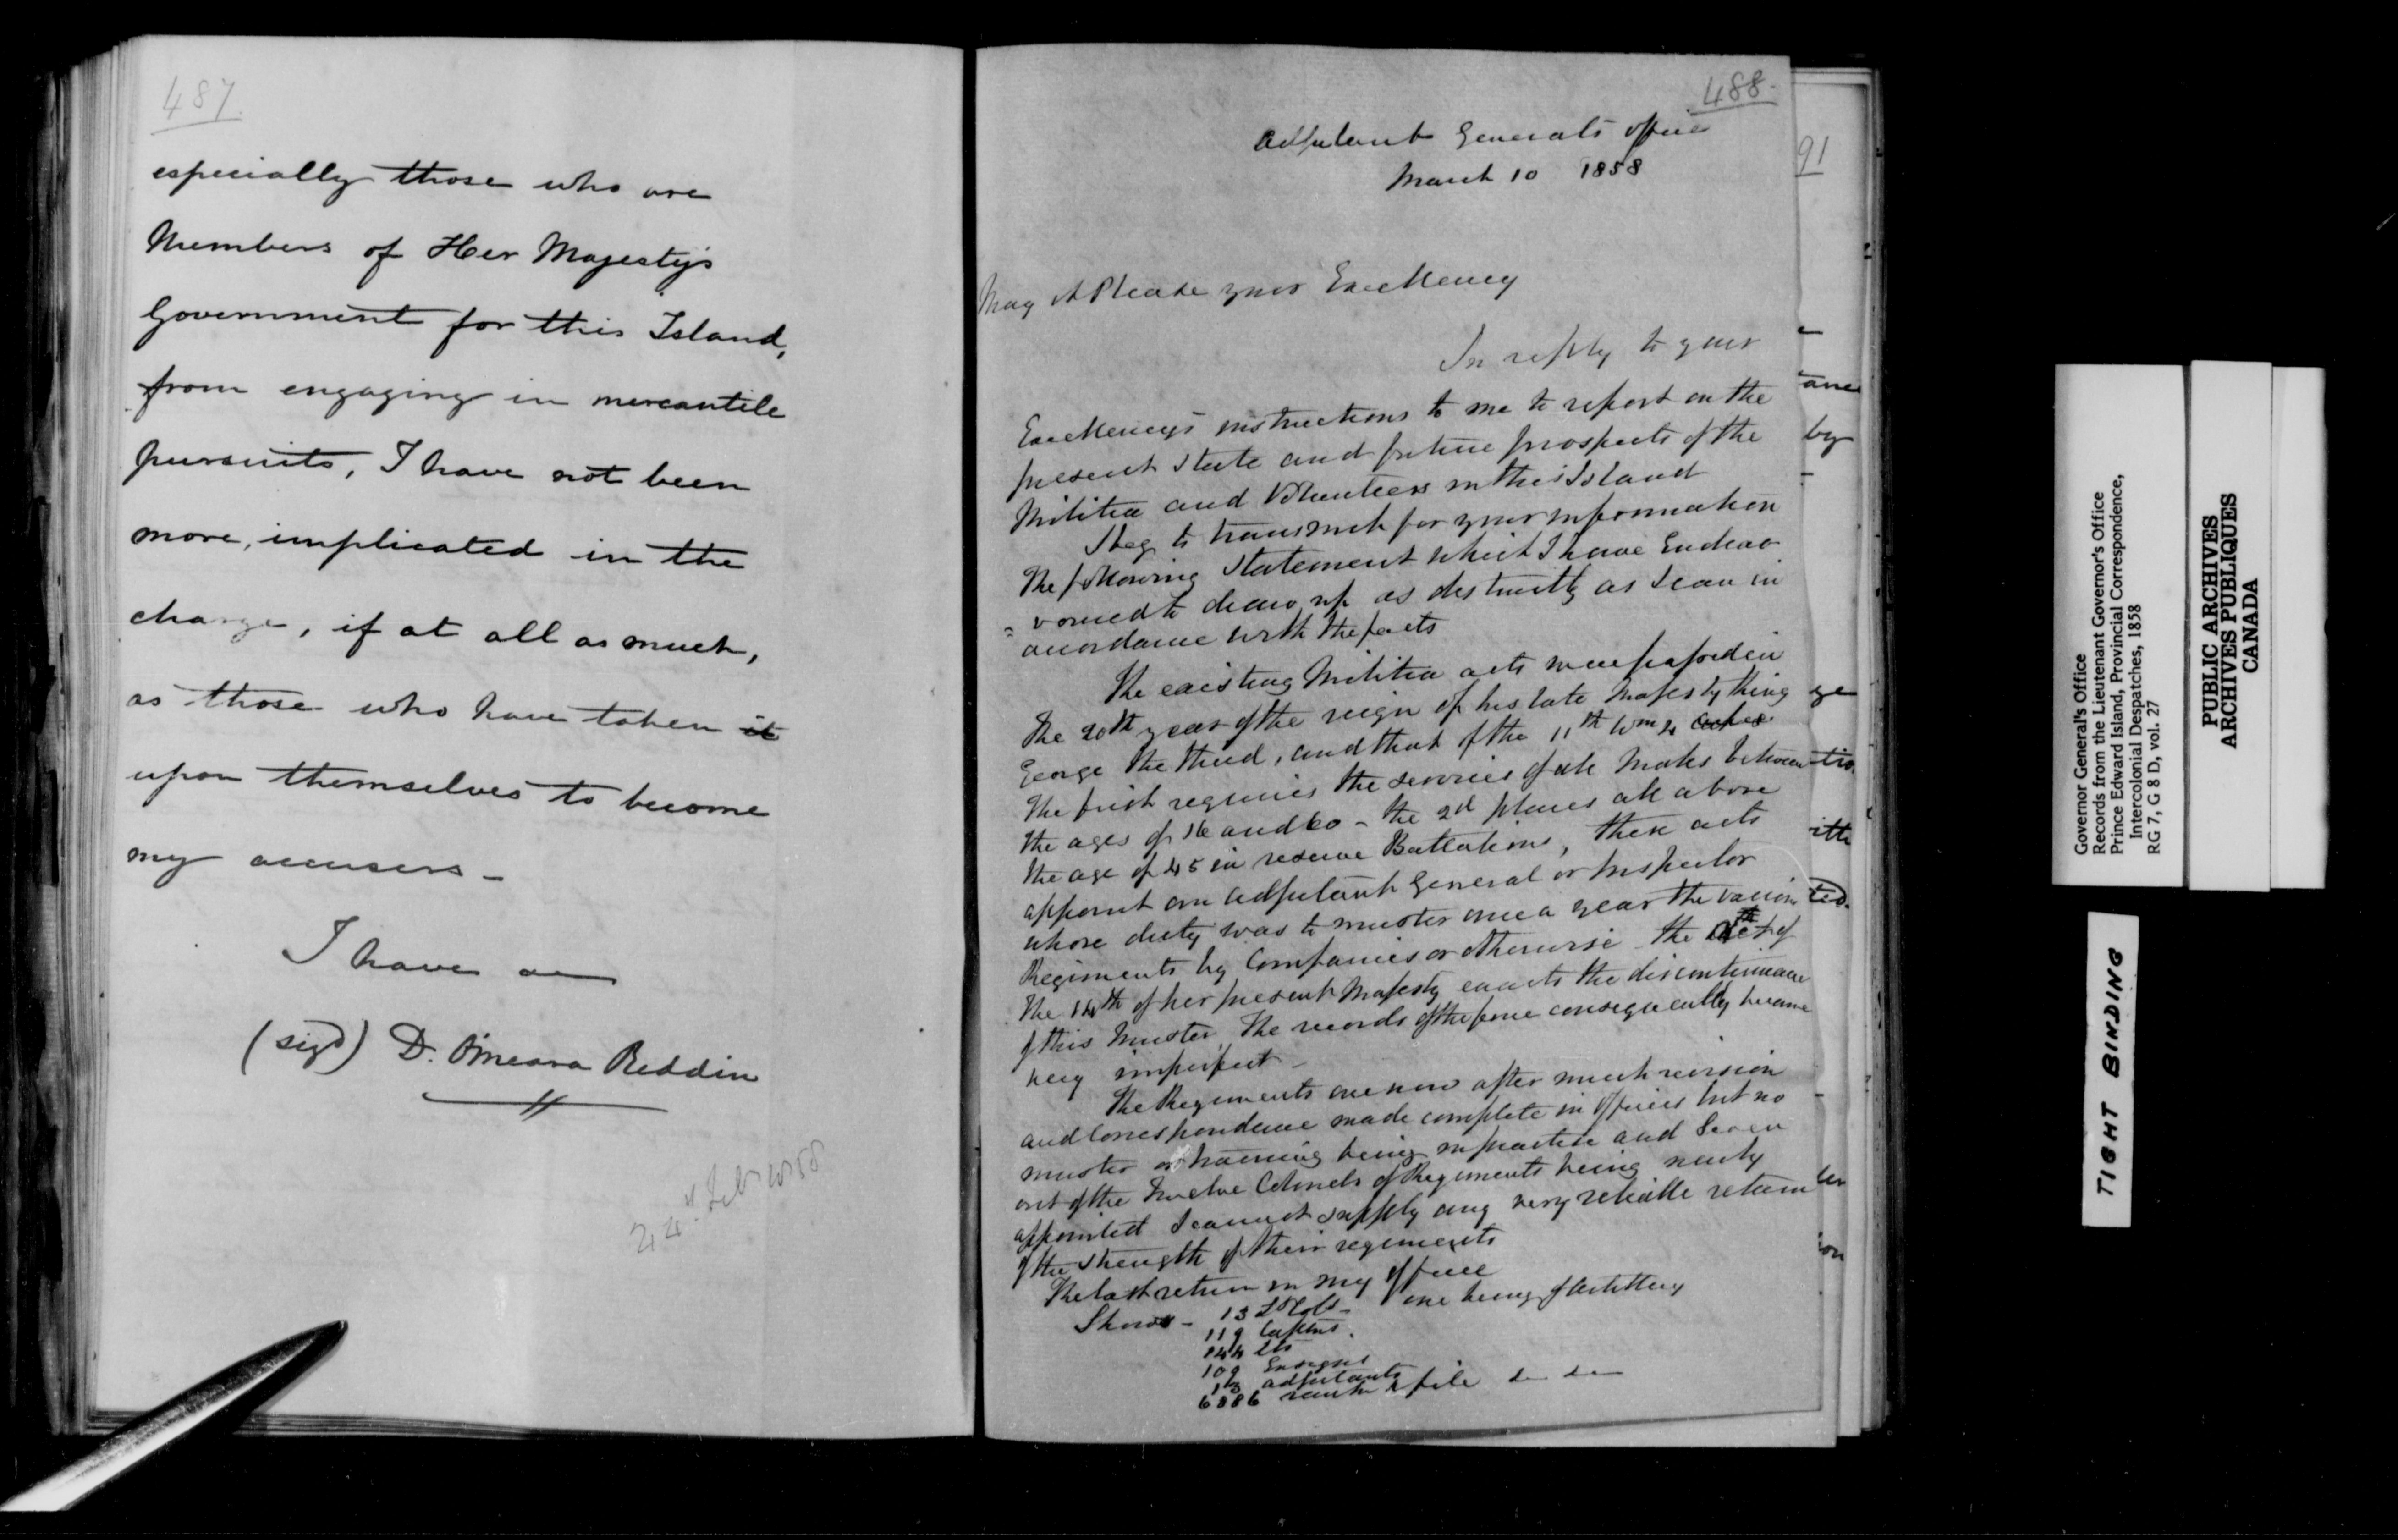 487.
especially those who are
Members of Her Majesty's
Government for this Island,
from engaging in mercantile
pursuits, I have not been
more, implicated in the
charge, if at all as much,
as those who have taken it
upon themselves to become
my accusers -
I have
(sigd) D. O'Meara Reddin
24" Feb 1858
488.
Adjutant Generals office
March 10 1858
May it Please your Excellency
In reply to your
Excellency's instructions to me to report on the
present state and future prospects of the
Militia and Volunteers in this Island
I beg to transmit for your information
the following statement which I have Endeav
= voured to draw up as distinctly as I can in
accordance with the facts
The existing Militia acts were passed in
the 20th year of the reign of his late Majesty King
George the third, and that of the 11th Wm 4
The first requires the services of all Males between
the ages of 16 and 60 - the 2d places all above
the age of 45 in reserve Battalions, these acts
appoint an adjutant General or Inspector
whose duty was to muster once a year the various
Regiments by Companies or otherwise - the Act of
the 14th of her present Majesty enacts the discontinuance
of this Muster, the records of the force consequently became
very imperfect -
The Regiments are now after much revision
and correspondence made complete in officers but no
muster or training being in practice and Seven
out of the twelve Colonels of Regiments being newly
appointed I cannot supply any very reliable return
of the strength of their regiments
The last return in my office
Shows - 13 Lt Cols - one being of Artillery
119 Captns.
144 Lts
109 Ensigns
13 adjutants
6086 rank & file
91
by
Governor General's Office
Records from the Lieutenant Governor's Office
Prince Edward Island, Provincial Correspondence,
Intercolonial Despatches, 1858
RG 7, G 8 D, vol. 27
PUBLIC ARCHIVES
ARCHIVES PUBLIQUES
CANADA
TIGHT BINDING